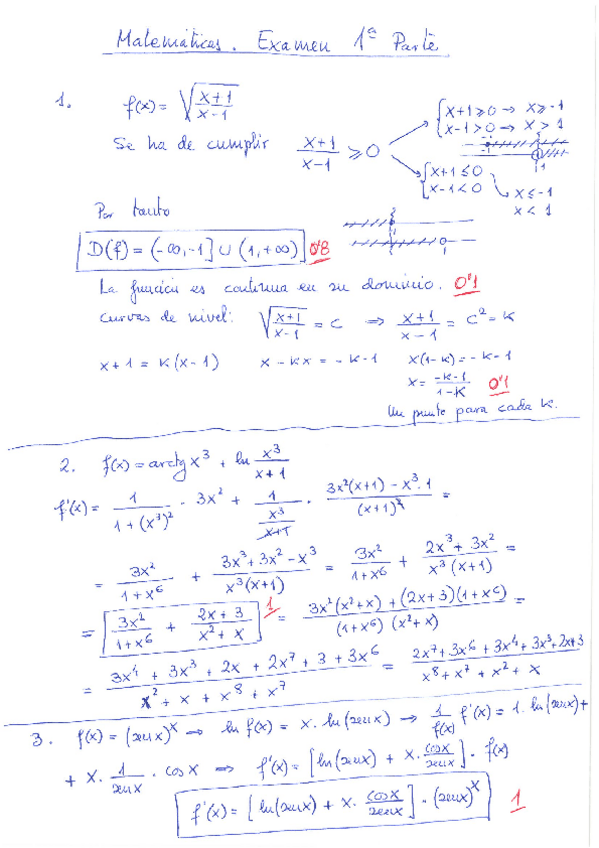 Matemáticas. Examen 1ª Parte
1. f(x) = √((x+1)/(x-1))
Se ha de cumplir (x+1)/(x-1) ⩾ 0
{x+1 ⩾ 0 → x ⩾ -1
x-1 > 0 → x > 1
-1
1
{x+1 ≤ 0
x-1 < 0
x ≤ -1
x < 1
Por tanto
D(f) = (-∞, -1] ∪ (1, +∞) 0'8
La función es continua en su dominio. 0'1
Curvas de nivel: √((x+1)/(x-1)) = C ⇒ (x+1)/(x-1) = C² = K
x+1 = K(x-1) x - Kx = -K-1 x(1-K) = -K-1
x = (-K-1)/(1-K) 0'1
Un punto para cada K.
2. f(x) = arctg x³ + ln x³/(x+1)
f'(x) = 1/(1+(x³)²) · 3x² + 1/(x³/(x+1)) · (3x²(x+1) - x³·1)/(x+1)² =
= 3x²/(1+x⁶) + (3x³+3x²-x³)/(x³(x+1)) = 3x²/(1+x⁶) + (2x³+3x²)/(x³(x+1)) =
= 3x²/(1+x⁶) + (2x+3)/(x²+x) 1 = (3x²(x²+x) + (2x+3)(1+x⁶))/((1+x⁶)(x²+x)) =
= (3x⁴ + 3x³ + 2x + 2x⁷ + 3 + 3x⁶)/(x² + x + x⁸ + x⁷) = (2x⁷+3x⁶+3x⁴+3x³+2x+3)/(x⁸+x⁷+x²+x)
3. f(x) = (sen x)ˣ → ln f(x) = x · ln(sen x) → 1/f(x) f'(x) = 1·ln(sen x) +
+ x · 1/sen x · cos x ⇒ f'(x) = [ln(sen x) + x · cos x/sen x] · f(x)
f'(x) = [ln(sen x) + x · cos x/sen x] · (sen x)ˣ 1